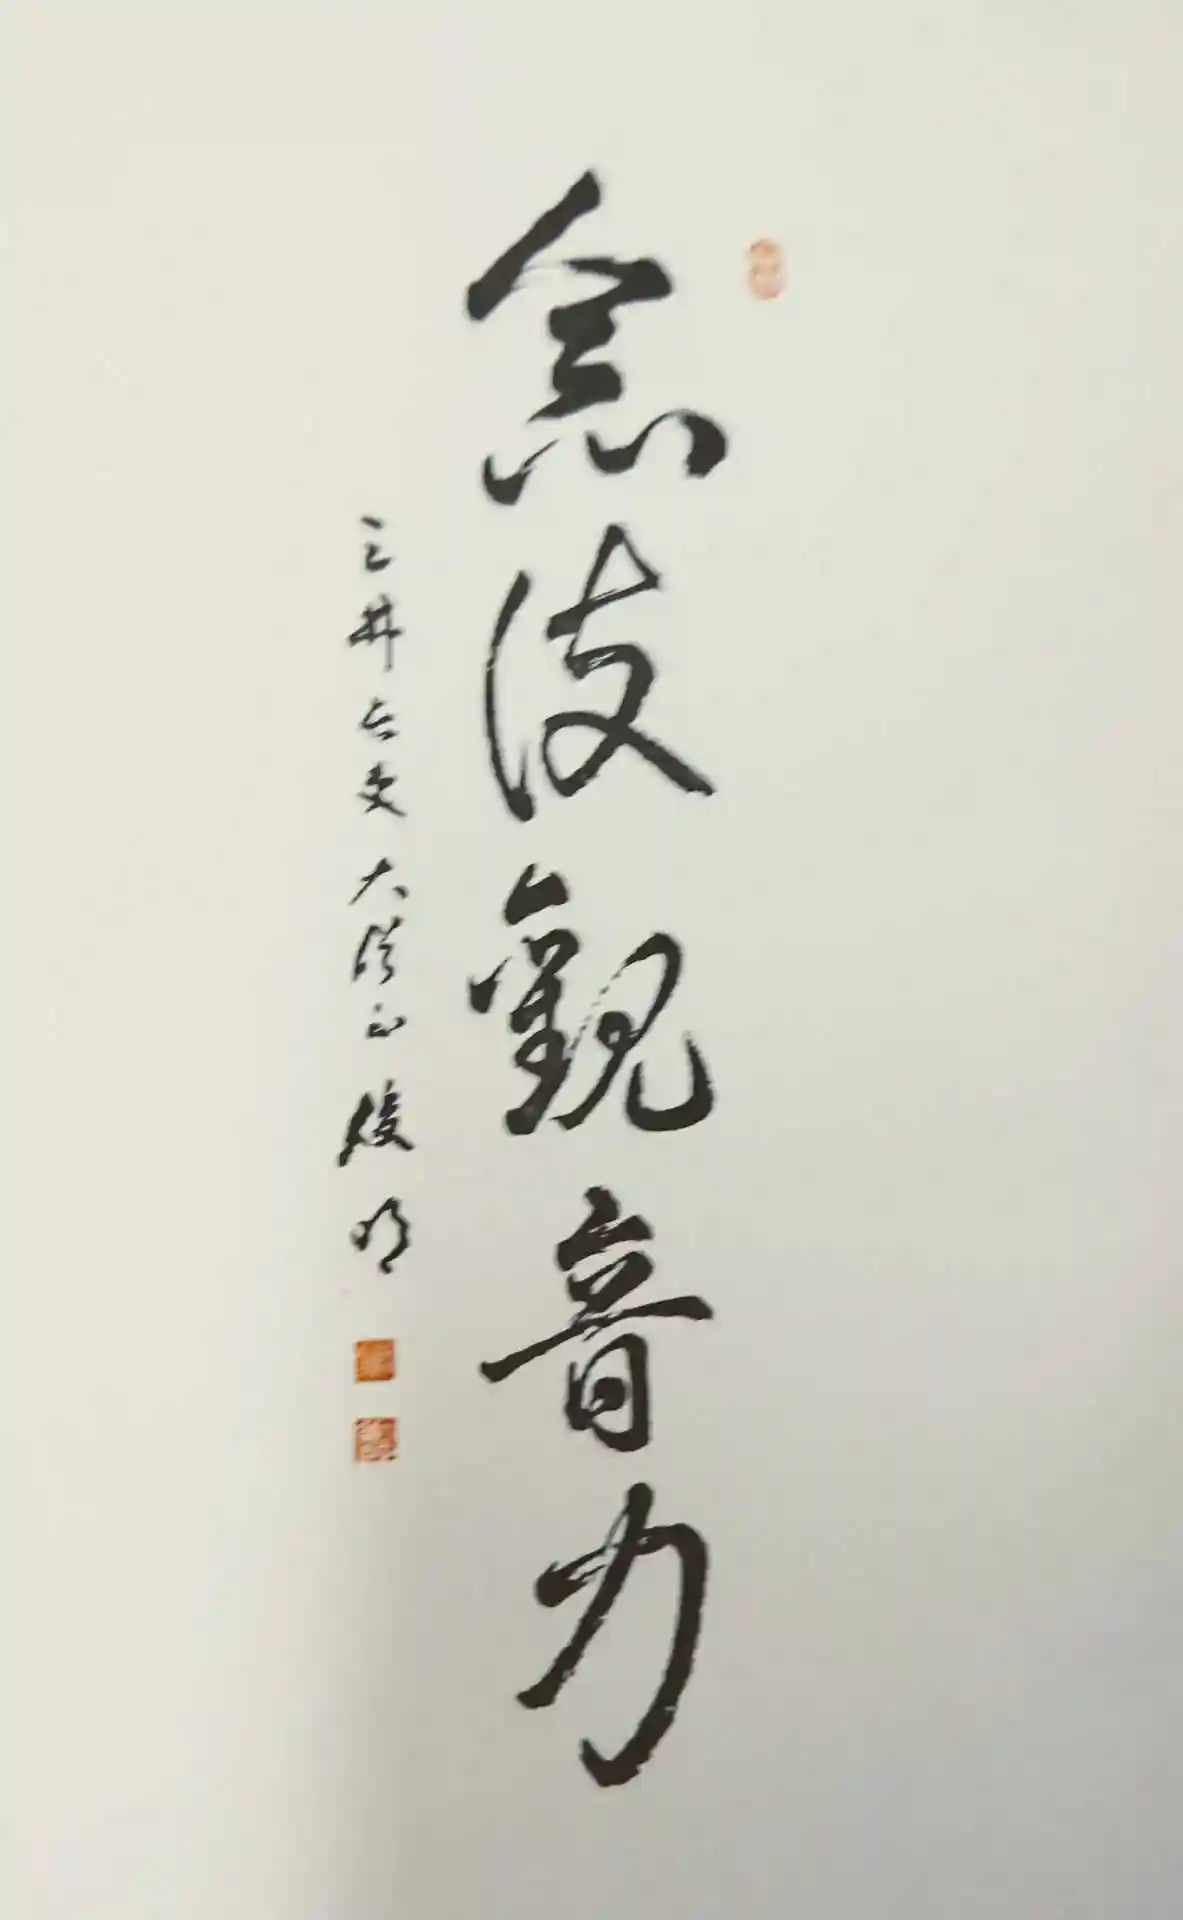 念彼觀音力
三井長吏大僧正俊明